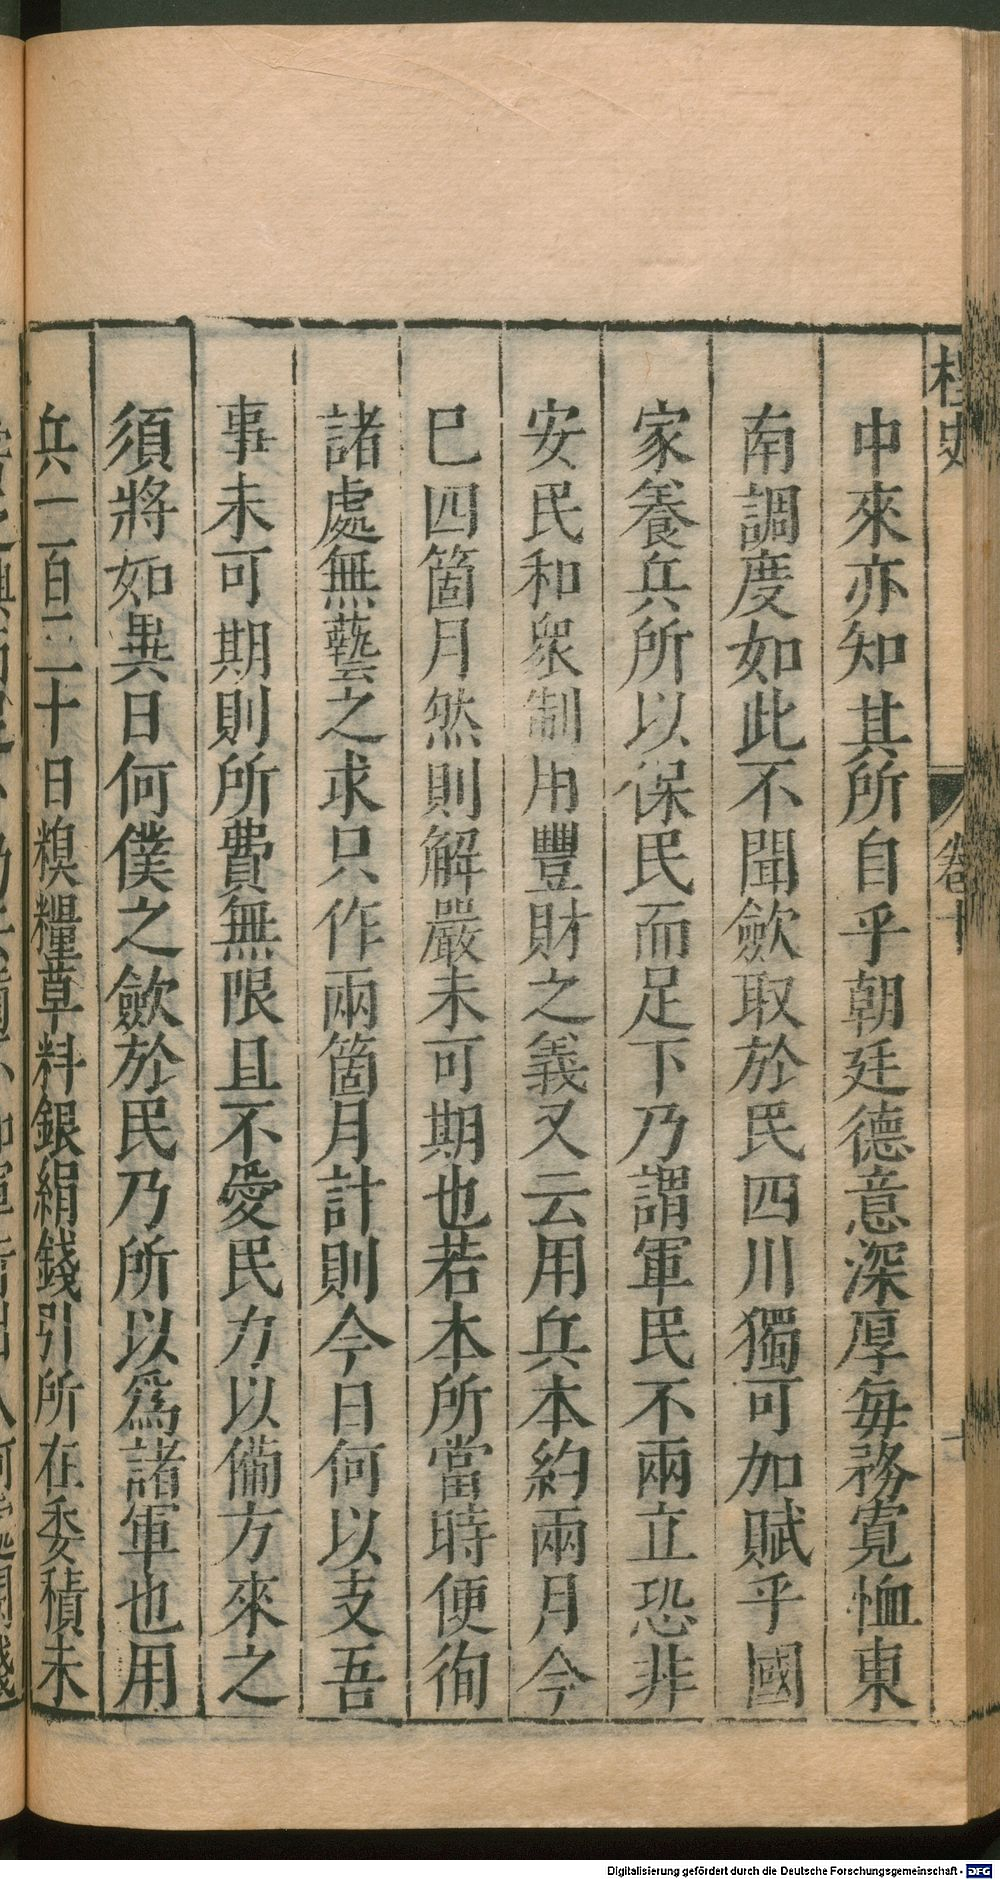 桯史
卷十
七
中來亦知其所自乎朝廷德意深厚每務寬恤東
南調度如此不聞歛取於民四川獨可加賦乎國
家養兵所以保民而足下乃謂軍民不兩立恐非
安民和衆制用豐財之義又云用兵本約兩月今
巳四箇月然則解嚴未可期也若本所當時便徇
諸處無藝之求只作兩箇月計則今日何以支吾
事未可期則所費無限且不愛民力以備方來之
須將如異日何僕之歛於民乃所以爲諸軍也用
兵一百二十日糗糧草料銀絹錢引所在委積未
Digitalisierung gefördert durch die Deutsche Forschungsgemeinschaft - DFG